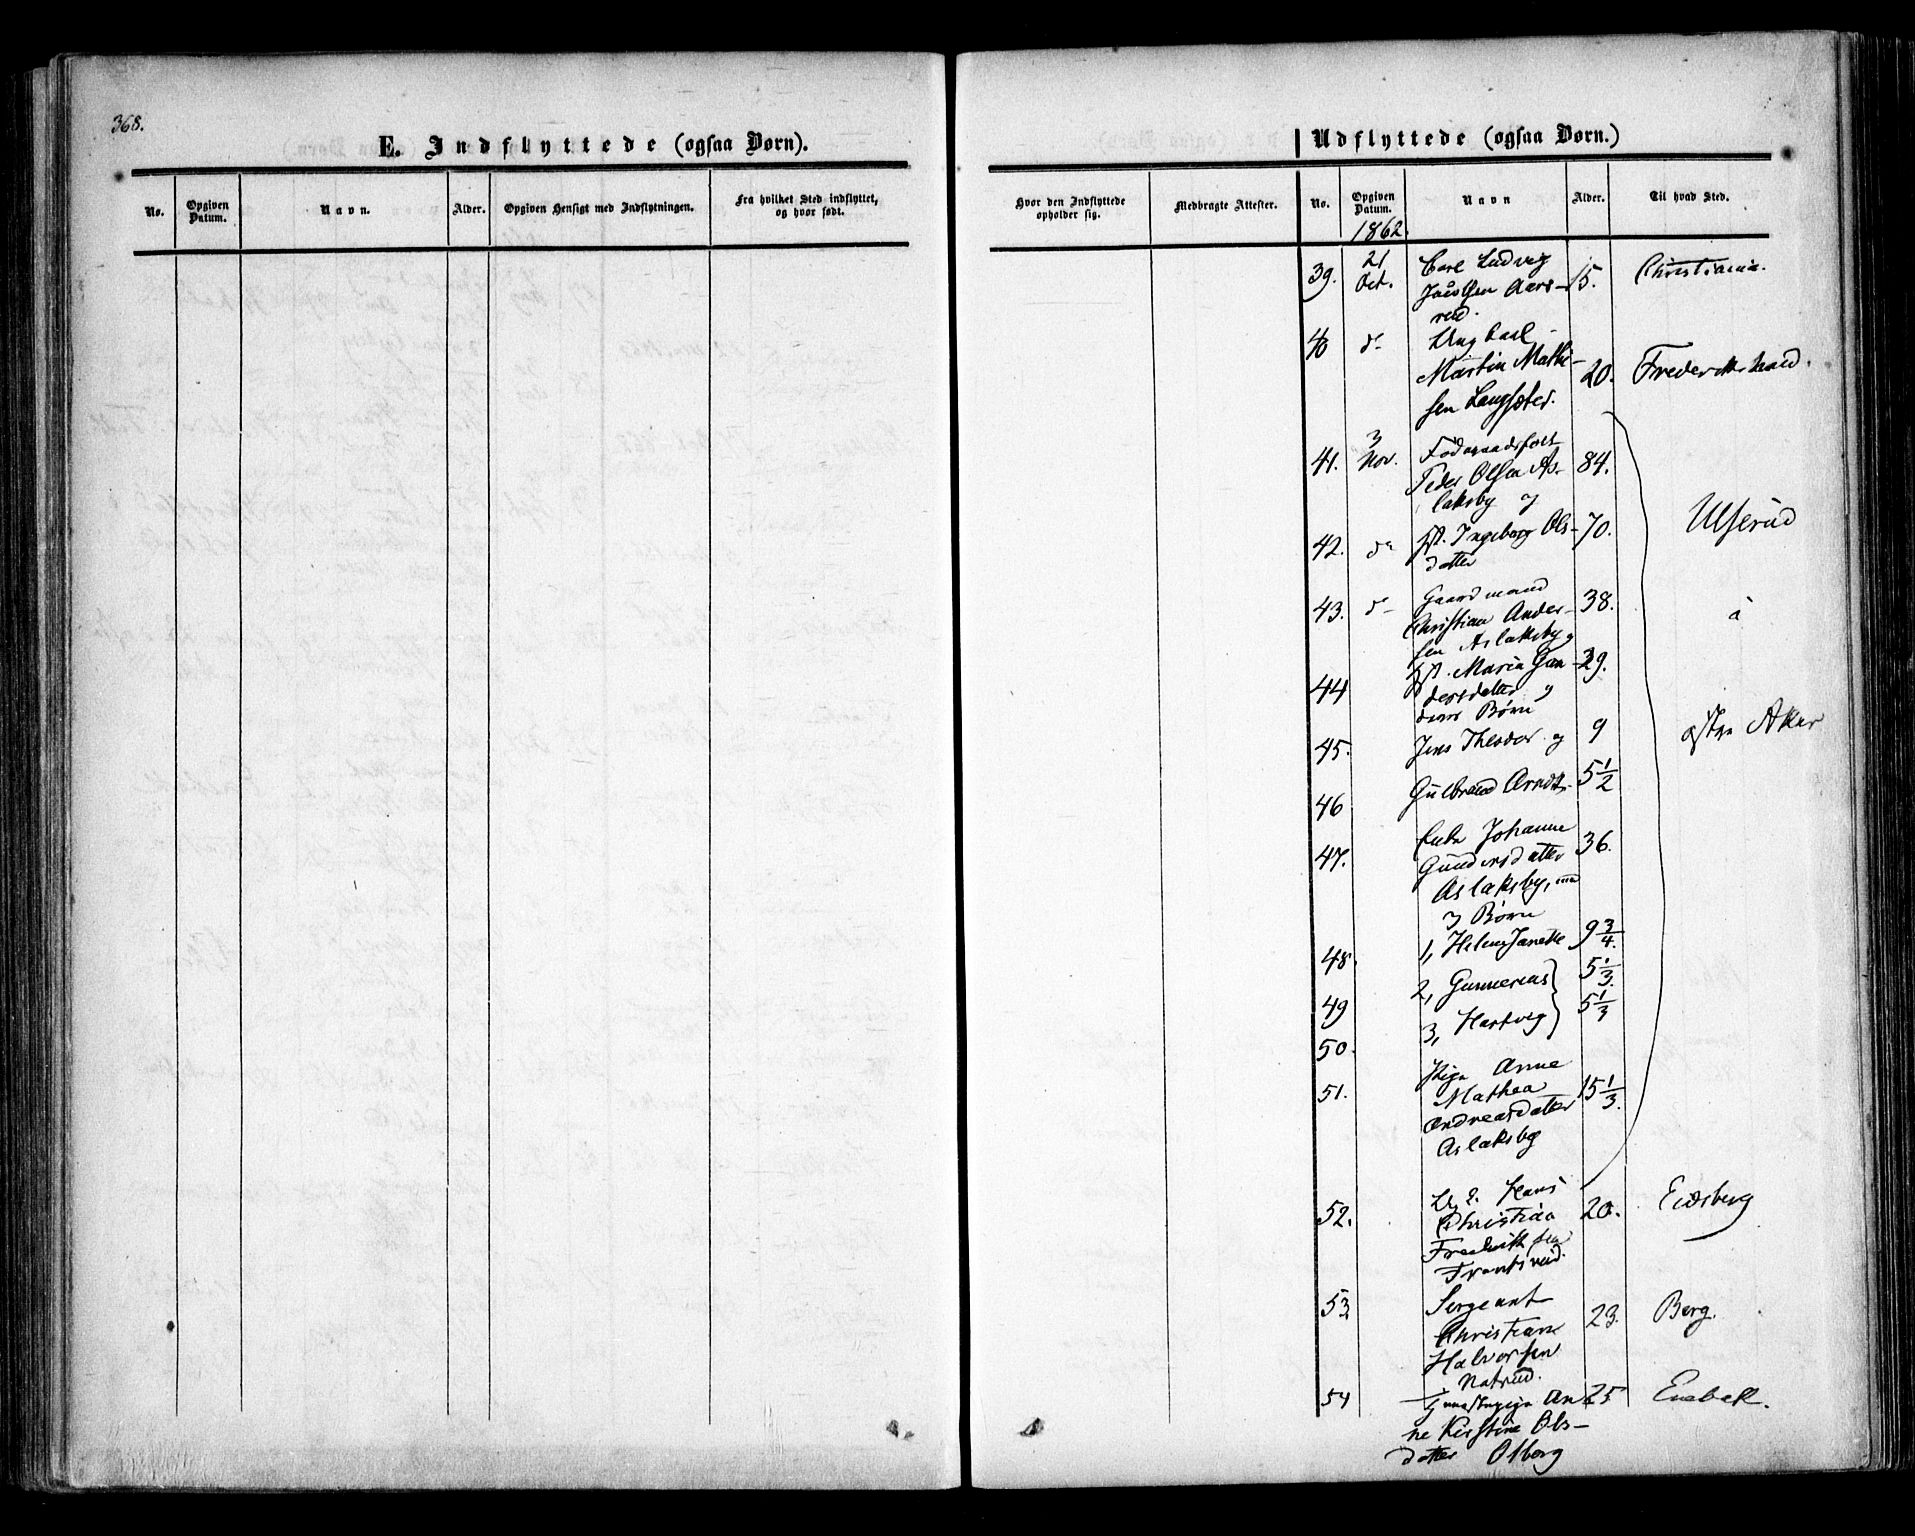 368.
E. Indflyttede (ogsaa Børn).
No.
Opgiven Datum.
Navn.
Alder.
Opgiven Hensigt med Indflytningen.
Fra hvilket Sted indflyttet, og hvor født.
Udflyttede (ogsaa Børn.)
Hvor den Indflyttede opholder sig.
Medbragte Attester.
No.
Opgiven Datum.
Navn
Alder.
Til hvad Sted.
1862.
39. 21 Oct. Carl Ludvig 15. Christiania.
Aars-
rud.
40 do Ung Carl
Martin Mathi- 20. Frederikshald.
sen Langsæter.
41. 3 Nov. Føderaadsfolk
Peder Olsen As- 84.
laksby og
42. do Ingeborg Ols- 70. Ulserud
datter
43. do Gaardmand
Christian Ander- 38. i
sen Aslaksby og
44 Maria Gun- 29.
dersdatter og
Børn
45. Jens Theodor og 9 østre Aker
46 Gulbrand Arndt. 5 1/2
47. Enke Johanne
Gundersdatter 36.
Aslaksby, m
3 Børn
48. 1, Helene Janette 9 3/4.
49 2, Gunnerius 5 1/3.
50. 3, Hartvig 5 1/3
51. Pige Anne
Mathea 15 1/3.
Andreasdatter
Aslaksby
52. Hans
Christian 20. Eidsberg
Frederiksen
Frantsrud.
53. Sergeant
Christian 23. Berg.
Halvorsen
Natrud.
54 An- 25 Enebak.
ne Kirstine Ols-
datter Olberg